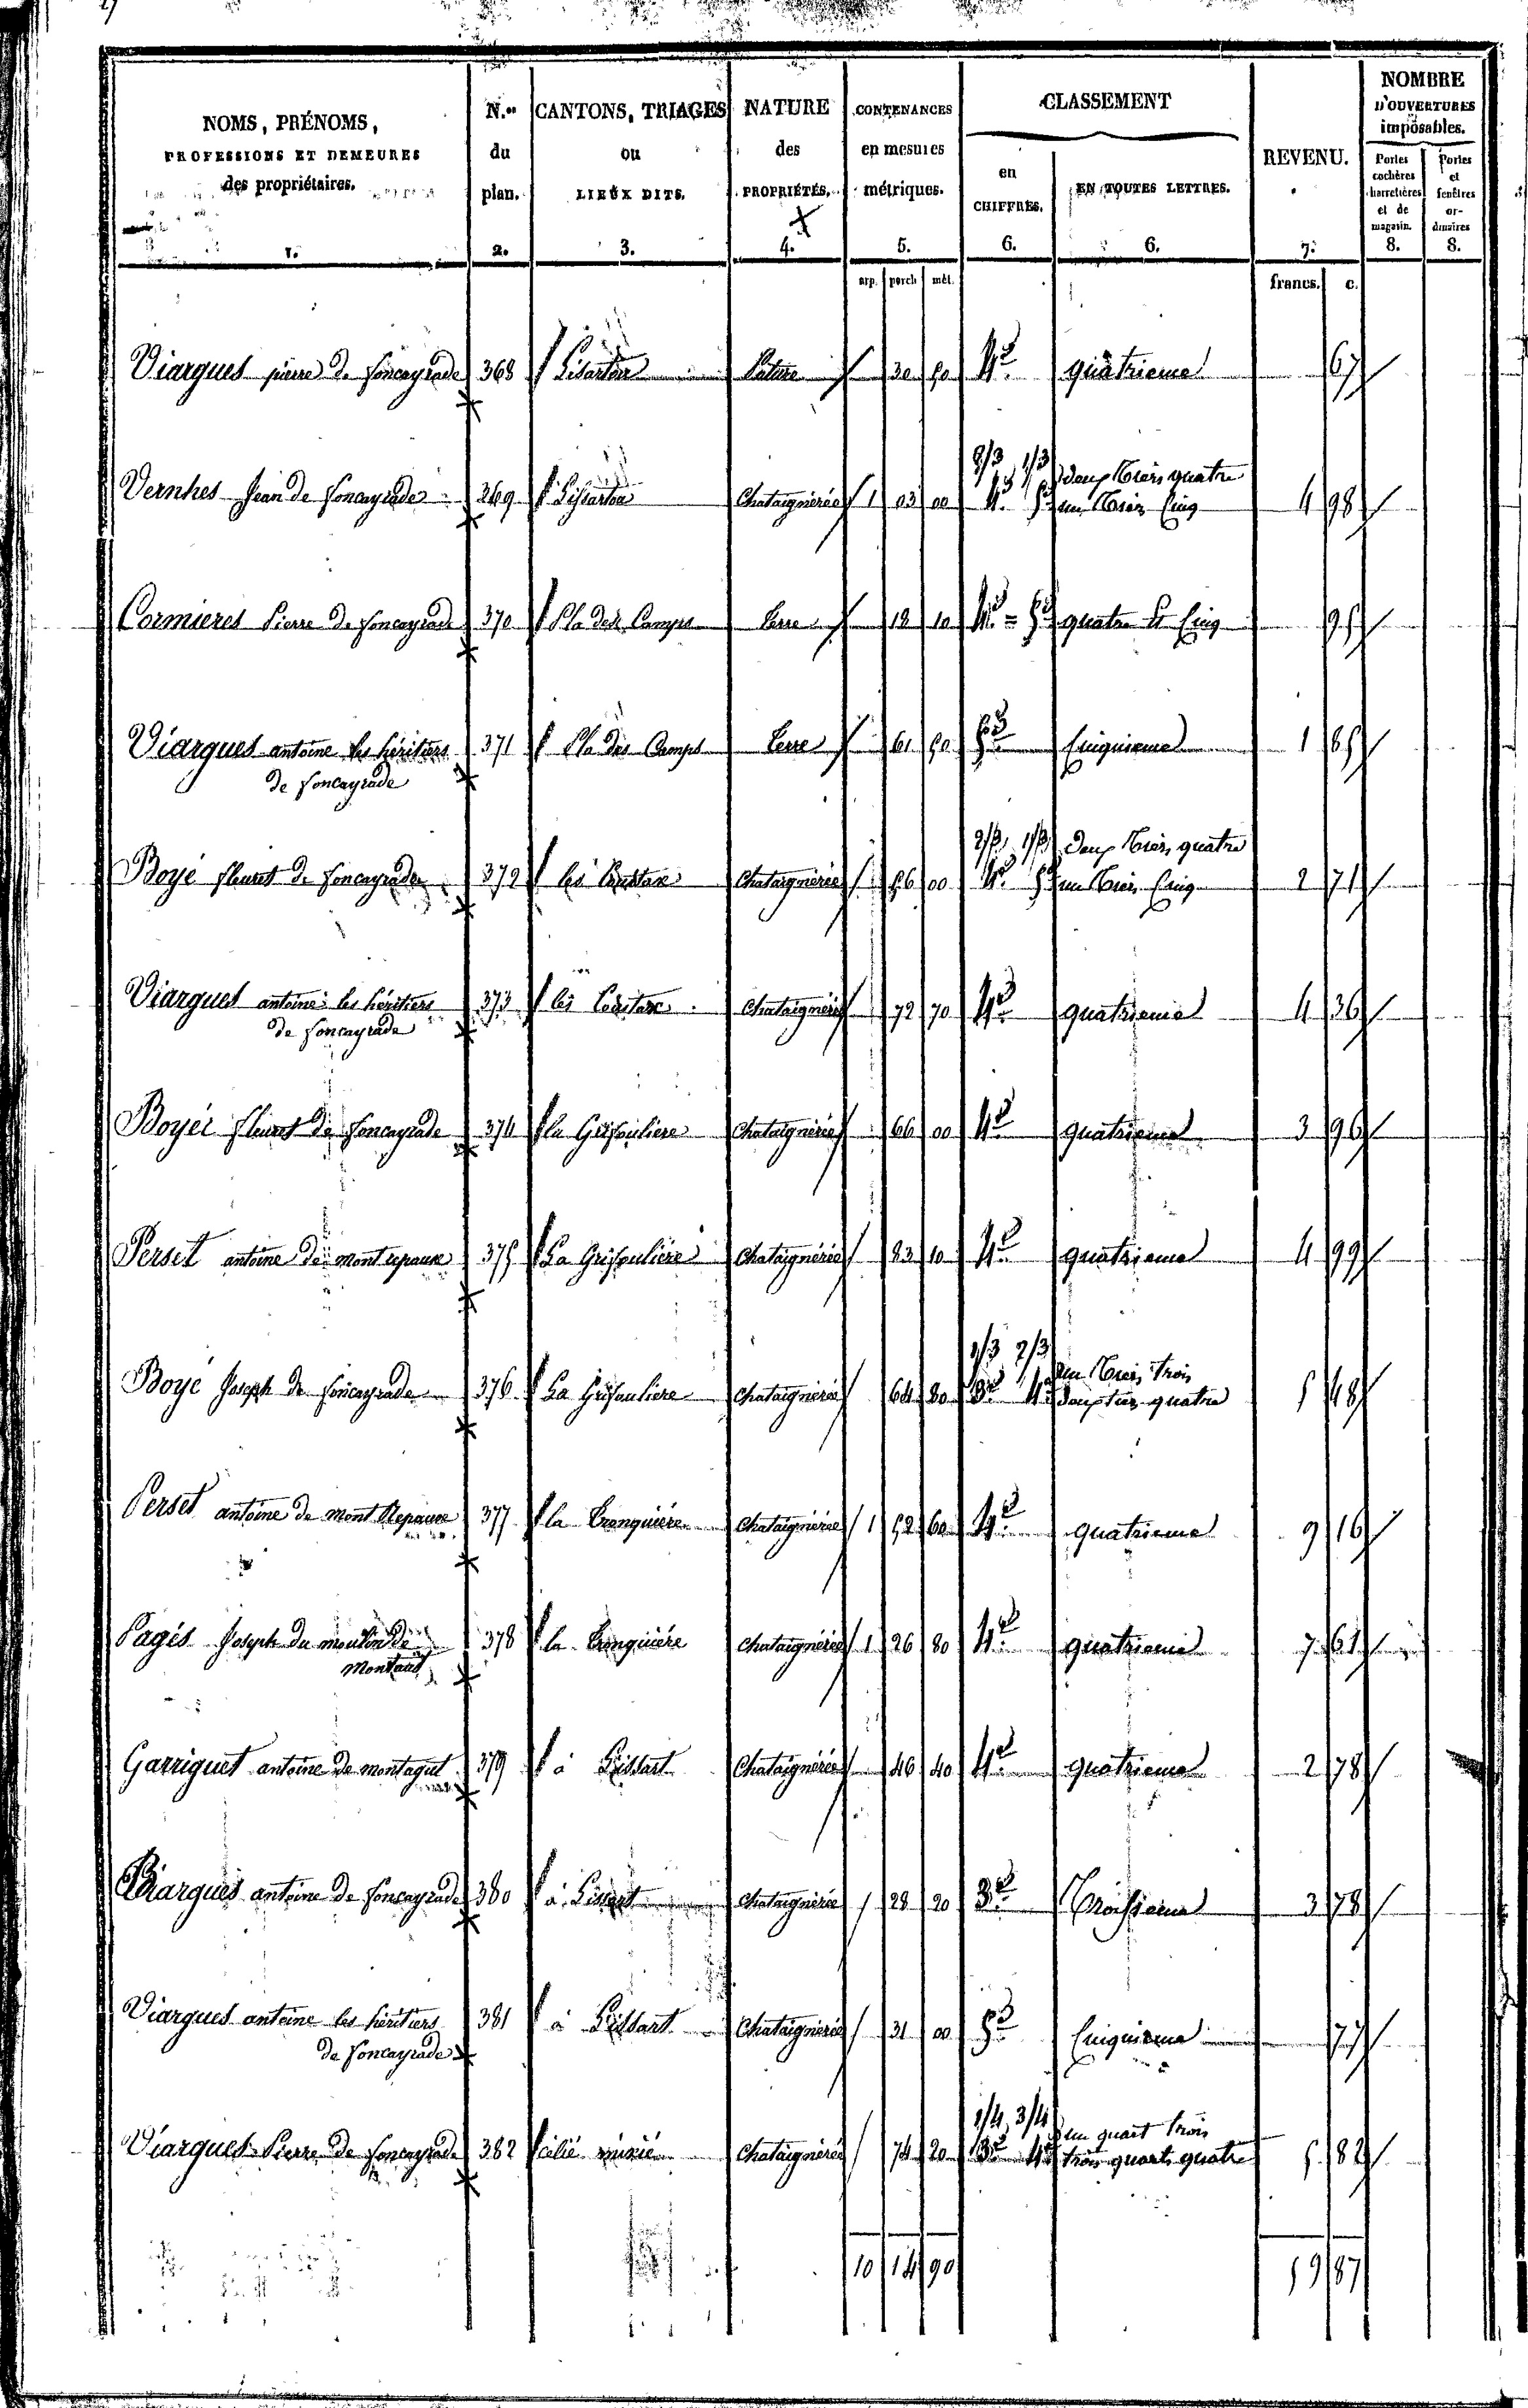 NOMS, PRÉNOMS, PROFESSIONS ET DEMEURES des propriétaires. 1.
N.os du plan. 2.
CANTONS, TRIAGES ou LIEUX DITS. 3.
NATURE des PROPRIÉTÉS. 4.
CONTENANCES en mesures métriques. 5.
CLASSEMENT
en CHIFFRES. 6.
EN TOUTES LETTRES. 6.
REVENU. 7.
NOMBRE D'OUVERTURES imposables.
Portes cochères charretières et de magasin. 8.
Portes et fenêtres ordinaires 8.
arp. perch mèt. francs. c.
Viargues pierre de foncayrade 368 Pature 30 50 4e quatrieme 67
Vernhes Jean de foncayrade 369 Chataigneraie 1 03 00 2/3 1/3 4e 5e deux tiers quatre un tiers Cinq 4 98
Cormieres Pierre de foncayrade 370 Pla des Camps Terre 18 10 4e = 5e quatre et Cinq 95
Viargues antoine les héritiers de foncayrade 371 Pla des Camps Terre 61 50 5e Cinquieme 1 85
Boyé fleuret de foncayrade 372 Chataigneraie 56 00 2/3 1/3 4e 5e deux tiers quatre un tiers Cinq 2 71
Viargues antoine les héritiers de foncayrade 373 Chataigneraie 72 70 4e quatrieme 4 36
Boyer fleuret de foncayrade 374 la Grifouliere Chataigneraie 66 00 4e quatrieme 3 96
Perset antoine de mont repaux 375 La Grifouliere Chataigneraie 83 10 4e quatrieme 4 99
Boyé Joseph de foncayrade 376 La Grifouliere Chataigneraie 64 80 1/3 2/3 3e 4e un tiers trois deux tiers quatre 5 48
Perset antoine de mont Repaux 377 la Chataigneraie 1 52 60 4e quatrieme 9 16
Pagés Joseph du moulin de Montaut 378 la Chataigneraie 1 26 80 4e quatrieme 7 61
Garriguet antoine de montagut 379 à Chataigneraie 46 40 4e quatrieme 2 78
Viargues antoine de foncayrade 380 à Chataigneraie 28 20 3e Troisieme 3 78
Viargues antoine les héritiers de foncayrade 381 à Chataigneraie 31 00 5e Cinquieme 77
Viargues Pierre de foncayrade 382 Chataigneraie 74 20 1/4 3/4 3e 4e un quart trois trois quarts quatre 5 82
10 14 90 59 87